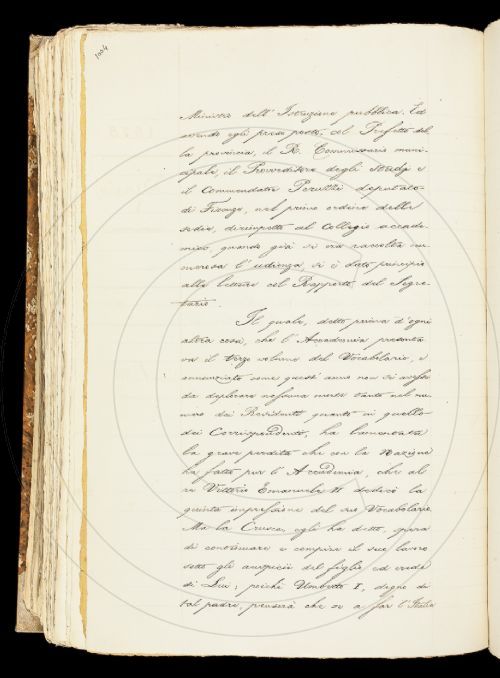 1004
Ministro dell'Istruzione pubblica. Ed
avendo egli preso posto, col Prefetto del-
la provincia, il R. Commissario muni-
cipale, il Provveditore degli Studj e
il Commendator Peruzzi deputato
di Firenze, nel primo ordine delle
sedie, dirimpetto al Collegio accade-
mico, quando già si era raccolta nu-
merosa l'udienza, si è dato principio
alla lettura del Rapporto del Segre-
tario.
Il quale, detto prima d'ogni
altra cosa, che l'Accademia presenta-
va il terzo volume del Vocabolario, e
annunziato come quest'anno non si avesse
da deplorare nessuna morte tanto nel nu-
mero dei Residenti quanto in quello
dei Corrispondenti, ha lamentato
la grave perdita che con la Nazione
ha fatto pur l'Accademia, che al
re Vittorio Emanuele II dedicò la
quinta impressione del suo Vocabolario.
Ma la Crusca, egli ha detto, spera
di continuare e compire il suo lavoro
sotto gli auspicii del figlio ed erede
di Lui; poichè Umberto I, degno di
tal padre, penserà che se a far l'Italia